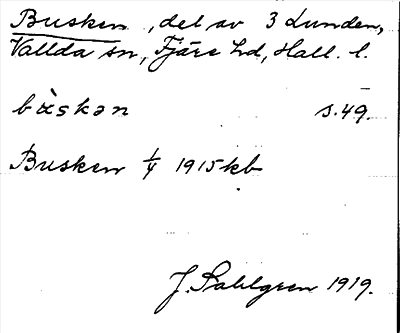 Busken, del av 3 Lunden,
Vallda sn, Fjäre hd, Hall. l.
bùskən s.49.
Busken 1/4 1915 kb
J. Sahlgren 1919.